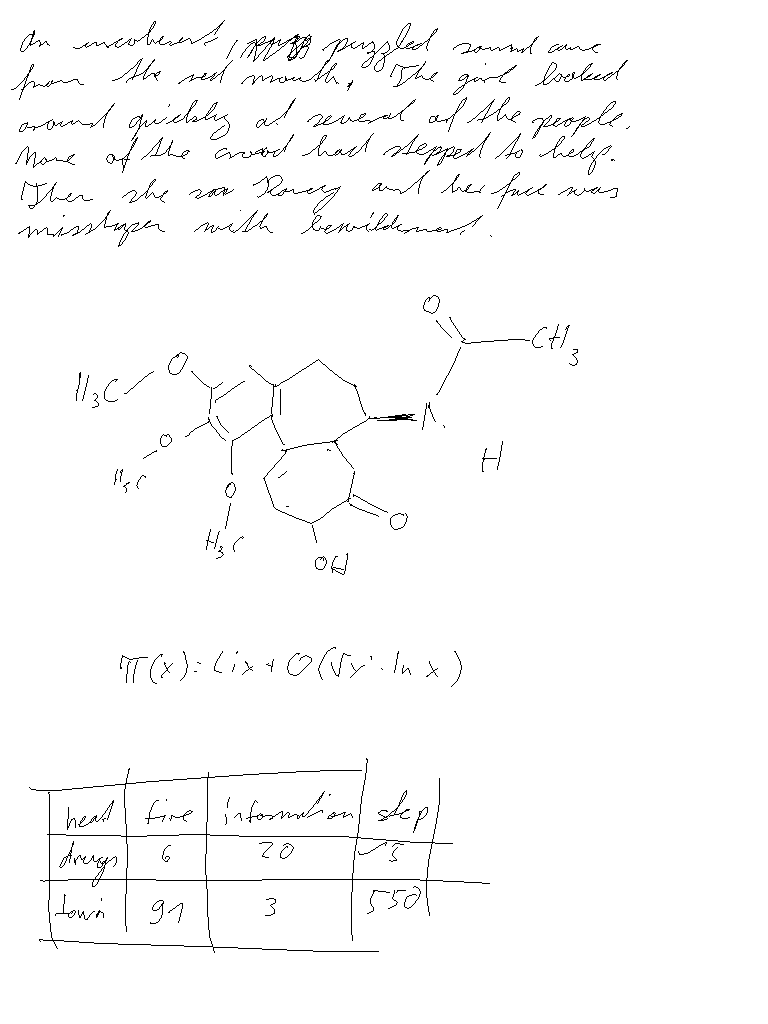 An incoherent, puzzled sound came
from the red mouth. The girl looked
around quickly at several of the people.
None of the crowd had stepped to help.
Then she saw Rovey and her face was
with bewilderment.
O
CH3
H3C O
N
H
O
H3C
O
H3C
O
OH
π(x) = Li x + O(√x · ln x)
heat fire information step
drugs 6 20 √3
town 91 3 550